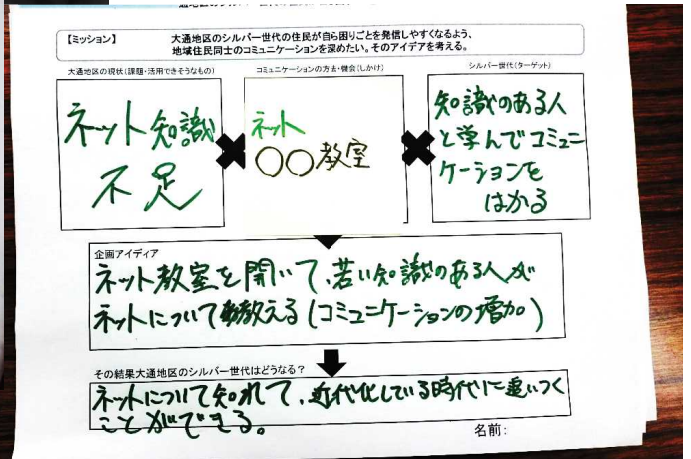 【ミッション】
大通地区のシルバー世代の住民が自ら困りごとを発信しやすくなるよう、
地域住民同士のコミュニケーションを深めたい。そのアイデアを考える。
大通地区の現状(課題・活用できそうなもの)
コミュニケーションの方法・機会(しかけ)
シルバー世代(ターゲット)
ネット知識
不足
ネット
○○教室
知識のある人
と学んでコミュニ
ケーションを
はかる
企画アイディア
ネット教室を開いて、若い知識のある人が
ネットについて教える(コミュニケーションの増加)
その結果大通地区のシルバー世代はどうなる?
ネットについて知れて、近代化している時代に追いつく
ことができる。
名前: